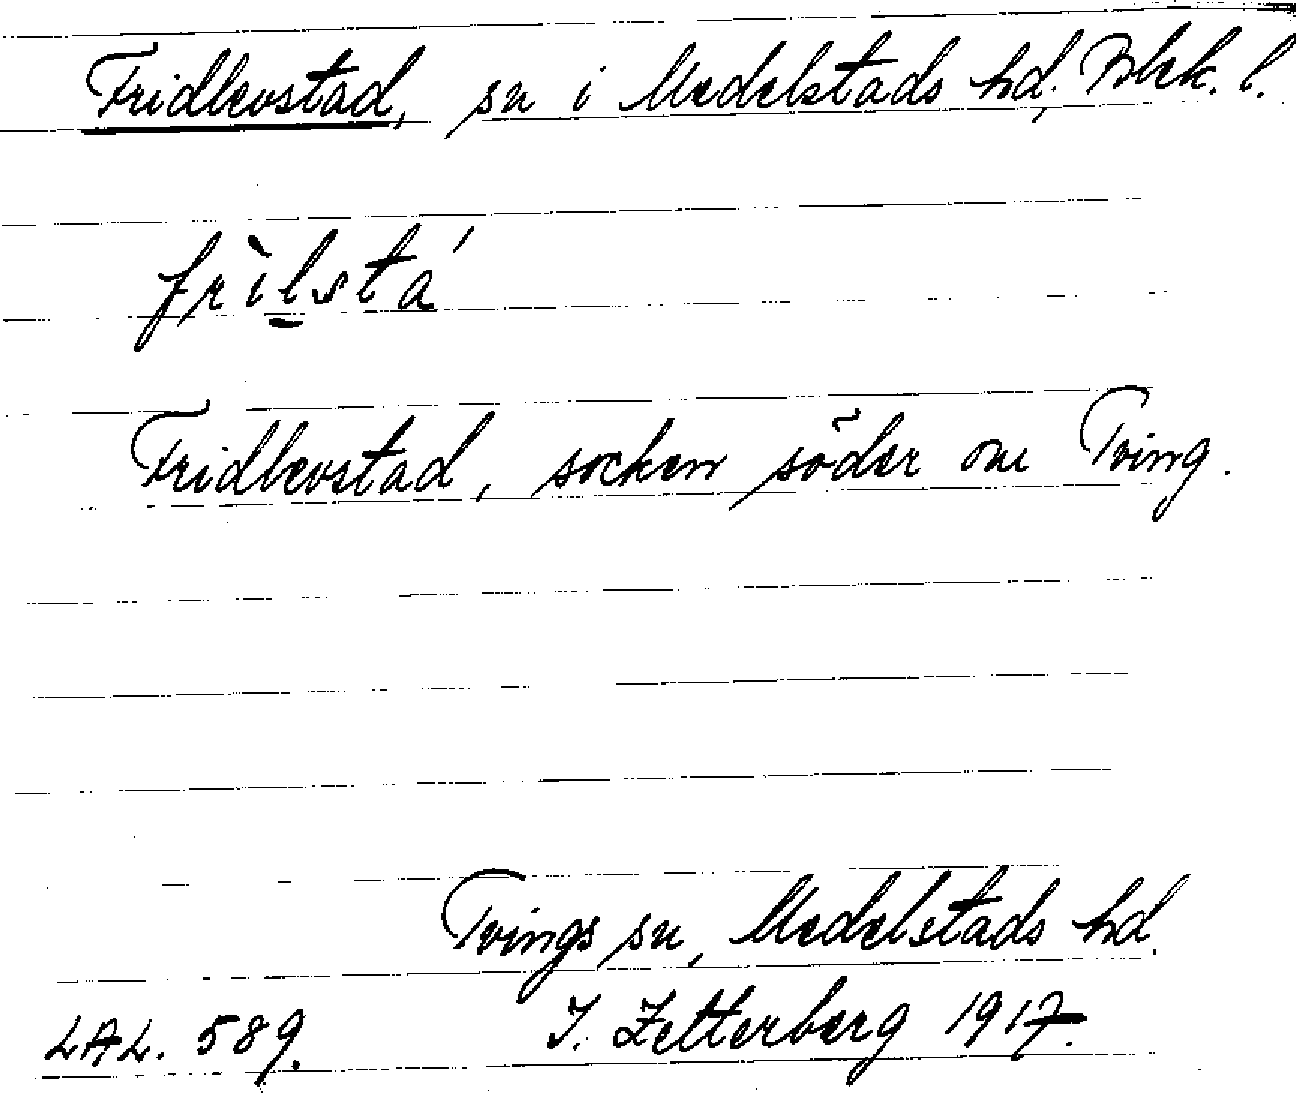 Fridlevstad, sn i Medelstads hd, Blek. l.
frìlsta´
Fridlevstad, socken söder om Tving.
Tvings sn, Medelstads hd.
LAL. 589. I. Zetterberg 1917.